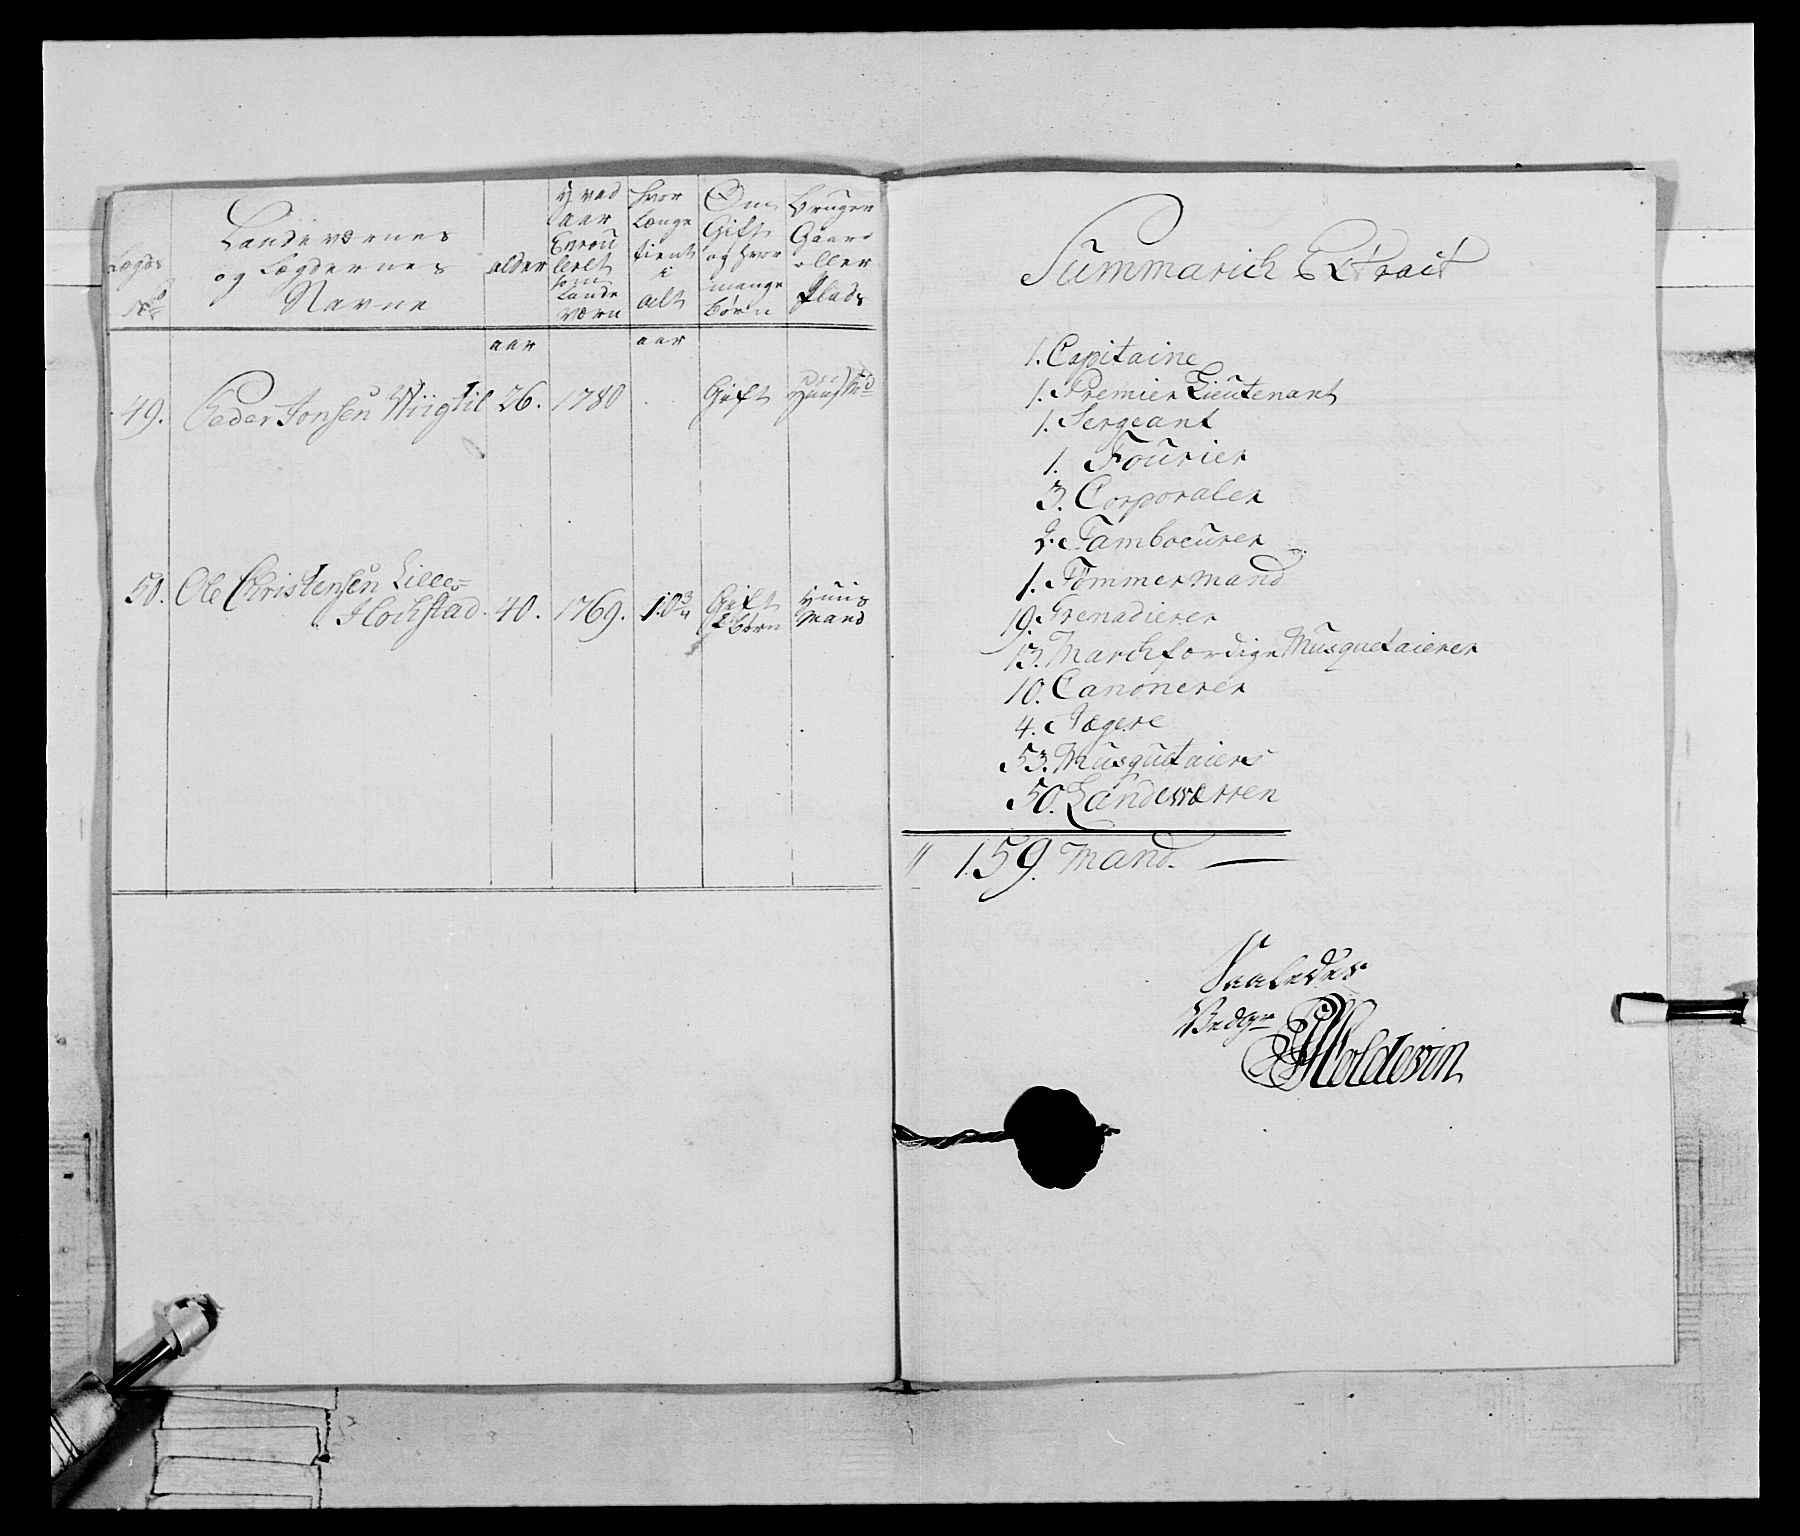 Lægds
No
Landeværnes
og Lægdernes
Navne
alder
Hvad
aar
Enrou
leret
som
Lande
værn
Hvor
Længe
tient
i
alt
Om
Gift
og hvor
mange
børn
Bruger
Gaar
eller
Plads
aar
aar
49. Peder Jonsen Wiigtil 26. 1780 Gift
50. Ole Christensen Lille=
Hochstad. 40. 1769. 10 3/4 Gift
2 børn
Huus
Mand
Summarich Extrait
1. Capitaine
1. Premier Lieutenant
1. Sergeant
1. Fourier
3. Corporaler
2. Tambourer
1. Tømmermand
19. Grenadierer
13. Marchfærdige Musquetaierer
10. Canonerer
4. Jægere
53. Musquetaiers
50. Landeværren
159. Mand.
Saaledes
Moldevin